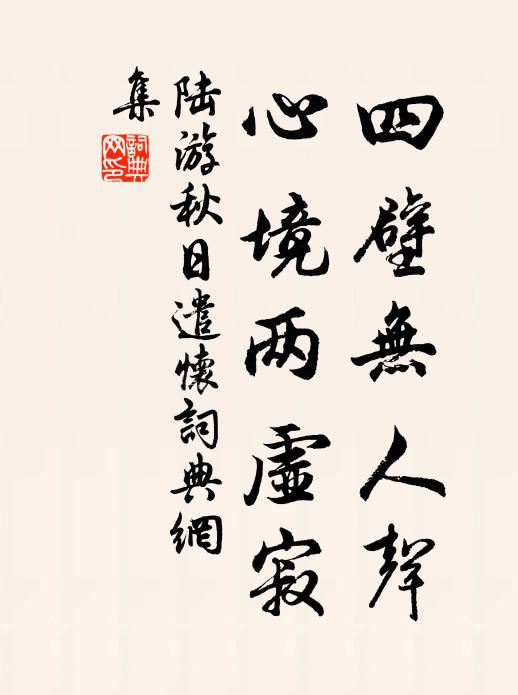 四壁無人聲
心境两虛寂
陆游秋日遣懷詞典網
集
詞典
网印